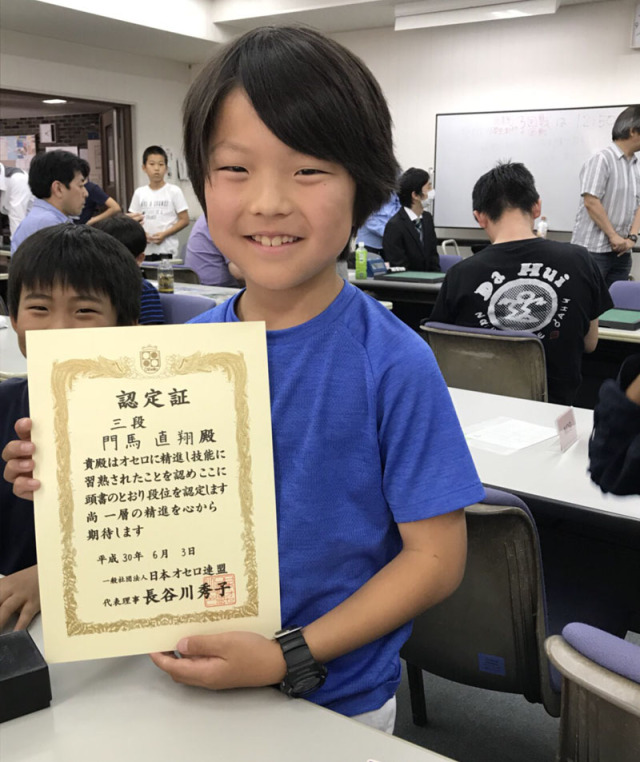 認定証
三段
門馬 直翔 殿
貴殿はオセロに精進し技能に
習熟されたことを認めここに
頭書のとおり段位を認定します
尚 一層の精進を心から
期待します
平成 30年 6月 3日
一般社団法人 日本オセロ連盟
代表理事 長谷川秀子
Da Hui